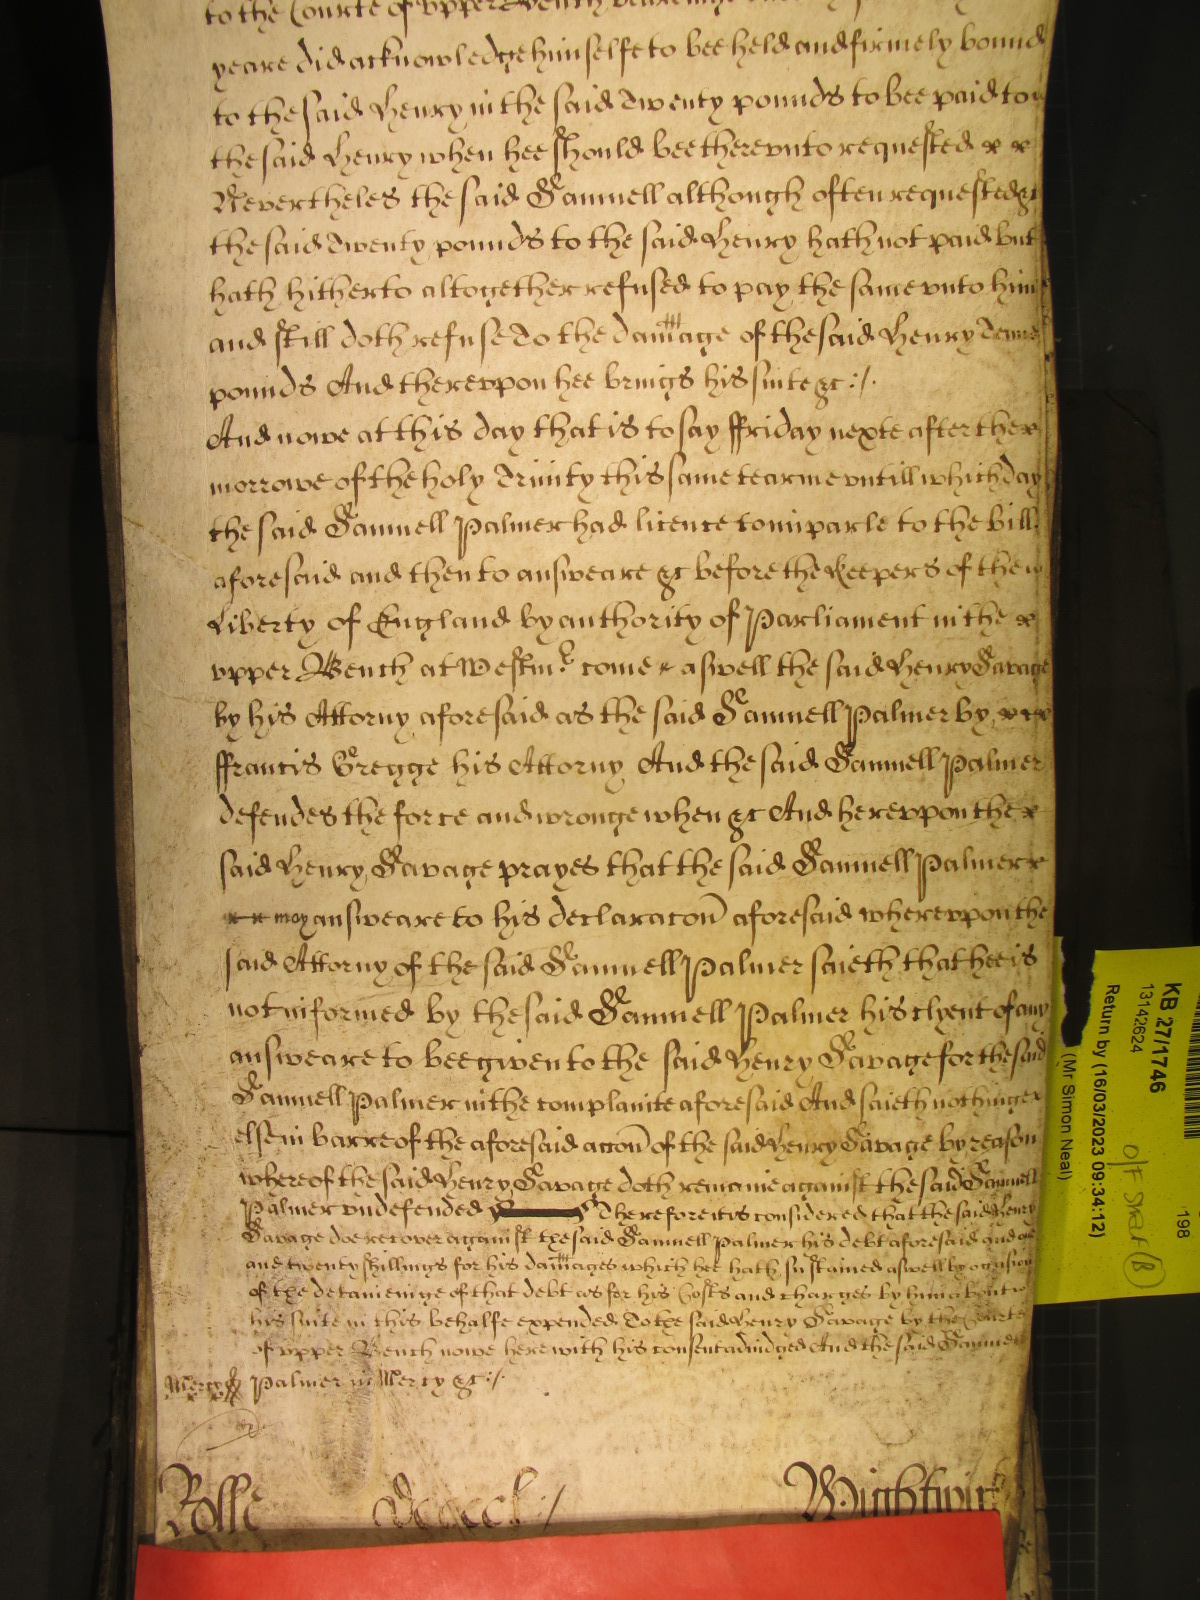 to the Courte of vpper Bench
yeare did acknowledge himselfe to bee held and firmely bound
to the said Henry in the said Twenty pounds to bee paid to
the said Henry when hee should bee therevnto requested
Nevertheles the said Samuell although often requested &c
the said Twenty pounds to the said Henry hath not paid but
hath hitherto altogether refused to pay the same vnto him
and still doth refuse To the damage of the said Henry Tenne
pounds And therevpon hee brings his suite &c :/.
And nowe at this day that is to say ffriday nexte after the
morrowe of the holy Trinity this same tearme vntill which day
the said Samuell Palmer had licence to imparle to the bill
aforesaid and then to answeare &c before the Keepers of the
Liberty of England by authority of Parliament in the
vpper Bench at Westmr come aswell the said Henry Savage
by his Attorny aforesaid as the said Samuell Palmer by
ffrancis Gregge his Attorny And the said Samuell Palmer
defendes the force and wronge when &c And herevpon the
said Henry Savage prayes that the said Samuell Palmer
may answeare to his declaracon aforesaid wherevpon the
said Attorny of the said Samuell Palmer saieth that hee is
not informed by the said Samuell Palmer his clyent of any
answeare to bee given to the said Henry Savage for the said
Samuell Palmer in the complainte aforesaid And saieth nothinge
else in barre of the aforesaid accon of the said Henry Savage by reason
whereof the said Henry Savage doth remaine against the said Samuell
Palmer vndefended Therefore it is considered that the said Henry
Savage doe recover against the said Samuell Palmer his debt aforesaid and
and twenty shillings for his damages which hee hath sustained aswell by occasion
of the detaineinge of that debt as for his Costs and charges by him about
his suite in this behalfe expended To the said Henry Savage by the Courte
of vpper Bench nowe here with his consent adiudged And the said Samuell
Mercy Palmer in Mercy &c :/.
Rolle
Wightwick
KB 27/1746
13142624
Return by (16/03/2023 09:34:12)
(Mr Simon Neal)
198
O/F Shelf (B)